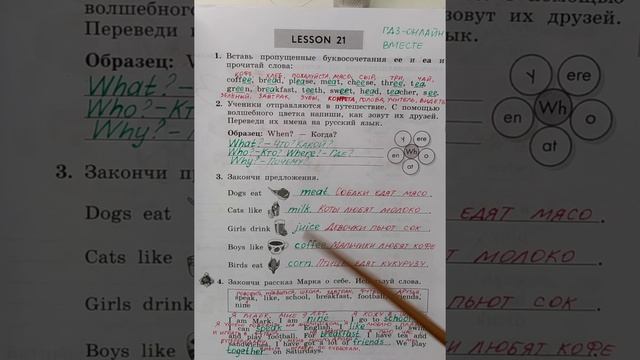 LESSON 21
ГДЗ-ОНЛАЙН
ВМЕСТЕ
1. Вставь пропущенные буквосочетания ee и ea и
прочитай слова:
КОФЕ, ХЛЕБ, ПОЖАЛУЙСТА, МЯСО, СЫР, ТРИ, ЧАЙ,
coffee, bread, please, meat, cheese, three, tea
green, breakfast, teeth, sweet, head, teacher, see.
ЗЕЛЁНЫЙ, ЗАВТРАК, ЗУБЫ, КОНФЕТА, ГОЛОВА, УЧИТЕЛЬ, ВИДЕТЬ
2. Ученики отправляются в путешествие. С помощью
волшебного цветка напиши, как зовут их друзей.
Переведи их имена на русский язык.
Образец: When? — Когда?
What? – ЧТО? КАКОЙ?
Who? – КТО? Where? – ГДЕ?
Why? – ПОЧЕМУ?
y
ere
en
Wh
o
at
3. Закончи предложения.
Dogs eat meat. СОБАКИ ЕДЯТ МЯСО.
Cats like milk. КОТЫ ЛЮБЯТ МОЛОКО.
Girls drink juice. ДЕВОЧКИ ПЬЮТ СОК.
Boys like coffee. МАЛЬЧИКИ ЛЮБЯТ КОФЕ
Birds eat corn. ПТИЦЫ ЕДЯТ КУКУРУЗУ.
4. Закончи рассказ Марка о себе. Используй слова.
speak, like, school, breakfast, football, friends,
nine
Я МАРК. МНЕ 9 ЛЕТ. Я ХОЖУ В
I am Mark. I am nine. I go to school.
I can speak English. I like to swim
and play football. For breakfast I have tea and
sandwiches. I have got a lot of friends. We play
together on Saturdays.
волшебного
Переведи
зовут их друзей.
язык.
Образец:
What? – ЧТО?
Who? – КТО?
Why? – ПО
3. Закончи
Dogs eat
Cats like
Girls drink
Boys like
y
ere
Wh
en
o
at
ЕДЯТ МЯСО.
МОЛОКО
СОК.
КОФЕ